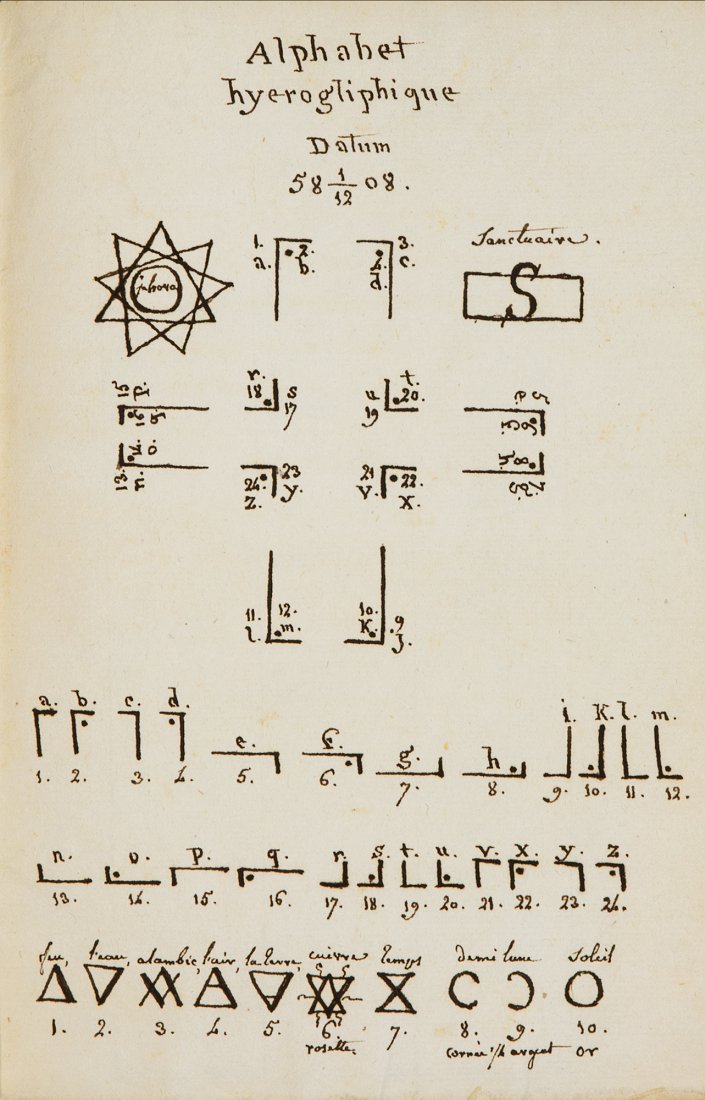 Alphabet
hyerogliphique
Datum
58 1/12 08.
Sanctuaire.
1. 2. 3.
a. b. d. c.
jehova S
15 p. r. t. 5
16 q. 18 s 19 20. e. 6
17
14 o. 23 21 8
13. n. 24 y. v. 22. 7.
z. x.
11. 12. 10. 9
l. m. K. j.
i. K. l. m.
a. b. c. d.
e. f. g. h
1. 2. 3. 4. 5. 6. 7. 8. 9. 10. 11. 12.
n. o. p. q. r. s. t. u. v. x. y. z.
13. 14. 15. 16. 17. 18. 19. 20. 21. 22. 23. 24.
feu, l'eau, alambic, l'air, la terre, cuivre temps demi lune soleil
1. 2. 3. 4. 5. 6 7. 8. 9. 10.
rosette. cornée argent or